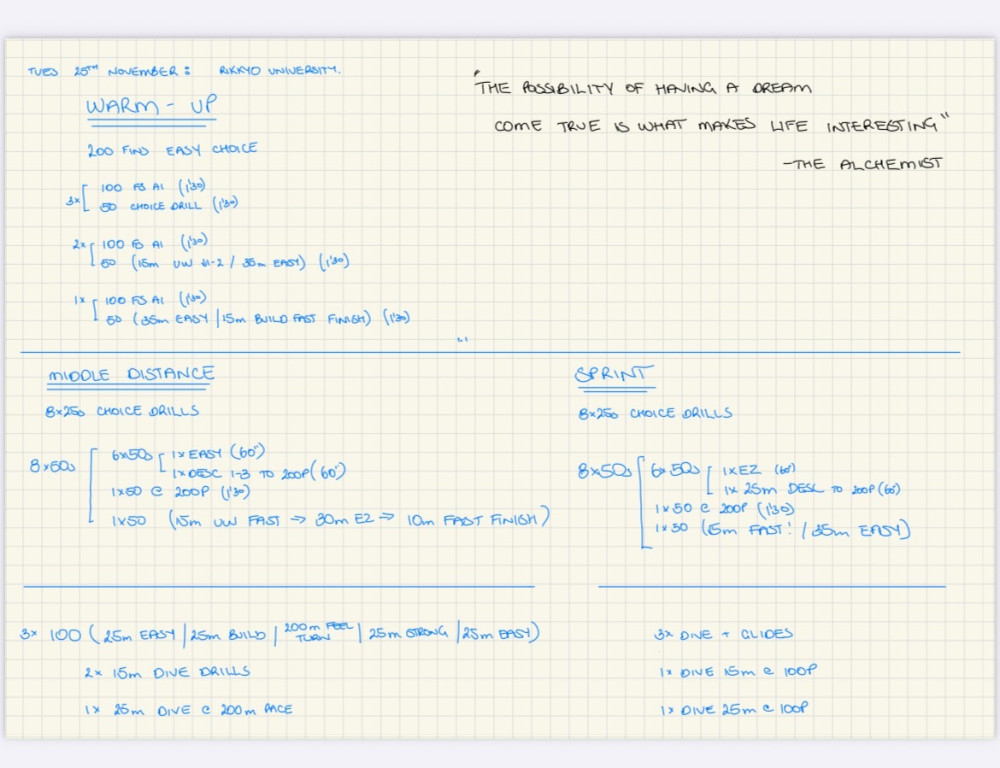 TUES 25TH NOVEMBER: RIKKYO UNIVERSITY.
"THE POSSIBILITY OF HAVING A DREAM
COME TRUE IS WHAT MAKES LIFE INTERESTING"
-THE ALCHEMIST
WARM-UP
200 FIND EASY CHOICE
3x [ 100 FS A1 (1'30)
50 CHOICE DRILL (1'30)
2x [ 100 FS A1 (1'30)
50 (15m UW ↓1-2 / 35m EASY) (1'30)
1x [ 100 FS A1 (1'30)
50 (35m EASY | 15m BUILD FAST FINISH) (1'30)
MIDDLE DISTANCE
8x25s CHOICE DRILLS
8x50s [ 6x50s [ 1x EASY (60")
1x DESC 1-3 TO 200P (60")
1x50 @ 200P (1'30)
1x50 (15m UW FAST → 30m EZ → 10m FAST FINISH)
3x 100 (25m EASY | 25m BUILD | 200m FEEL TURN | 25m STRONG | 25m EASY)
2x 15m DIVE DRILLS
1x 25m DIVE @ 200m PACE
SPRINT
8x25s CHOICE DRILLS
8x50s [ 6x50s [ 1xEZ (60")
1x 25m DESC TO 200P (60")
1x50 @ 200P (1'30)
1x50 (15m FAST! / 35m EASY)
3x DIVE + GLIDES
1x DIVE 15m @ 100P
1x DIVE 25m @ 100P